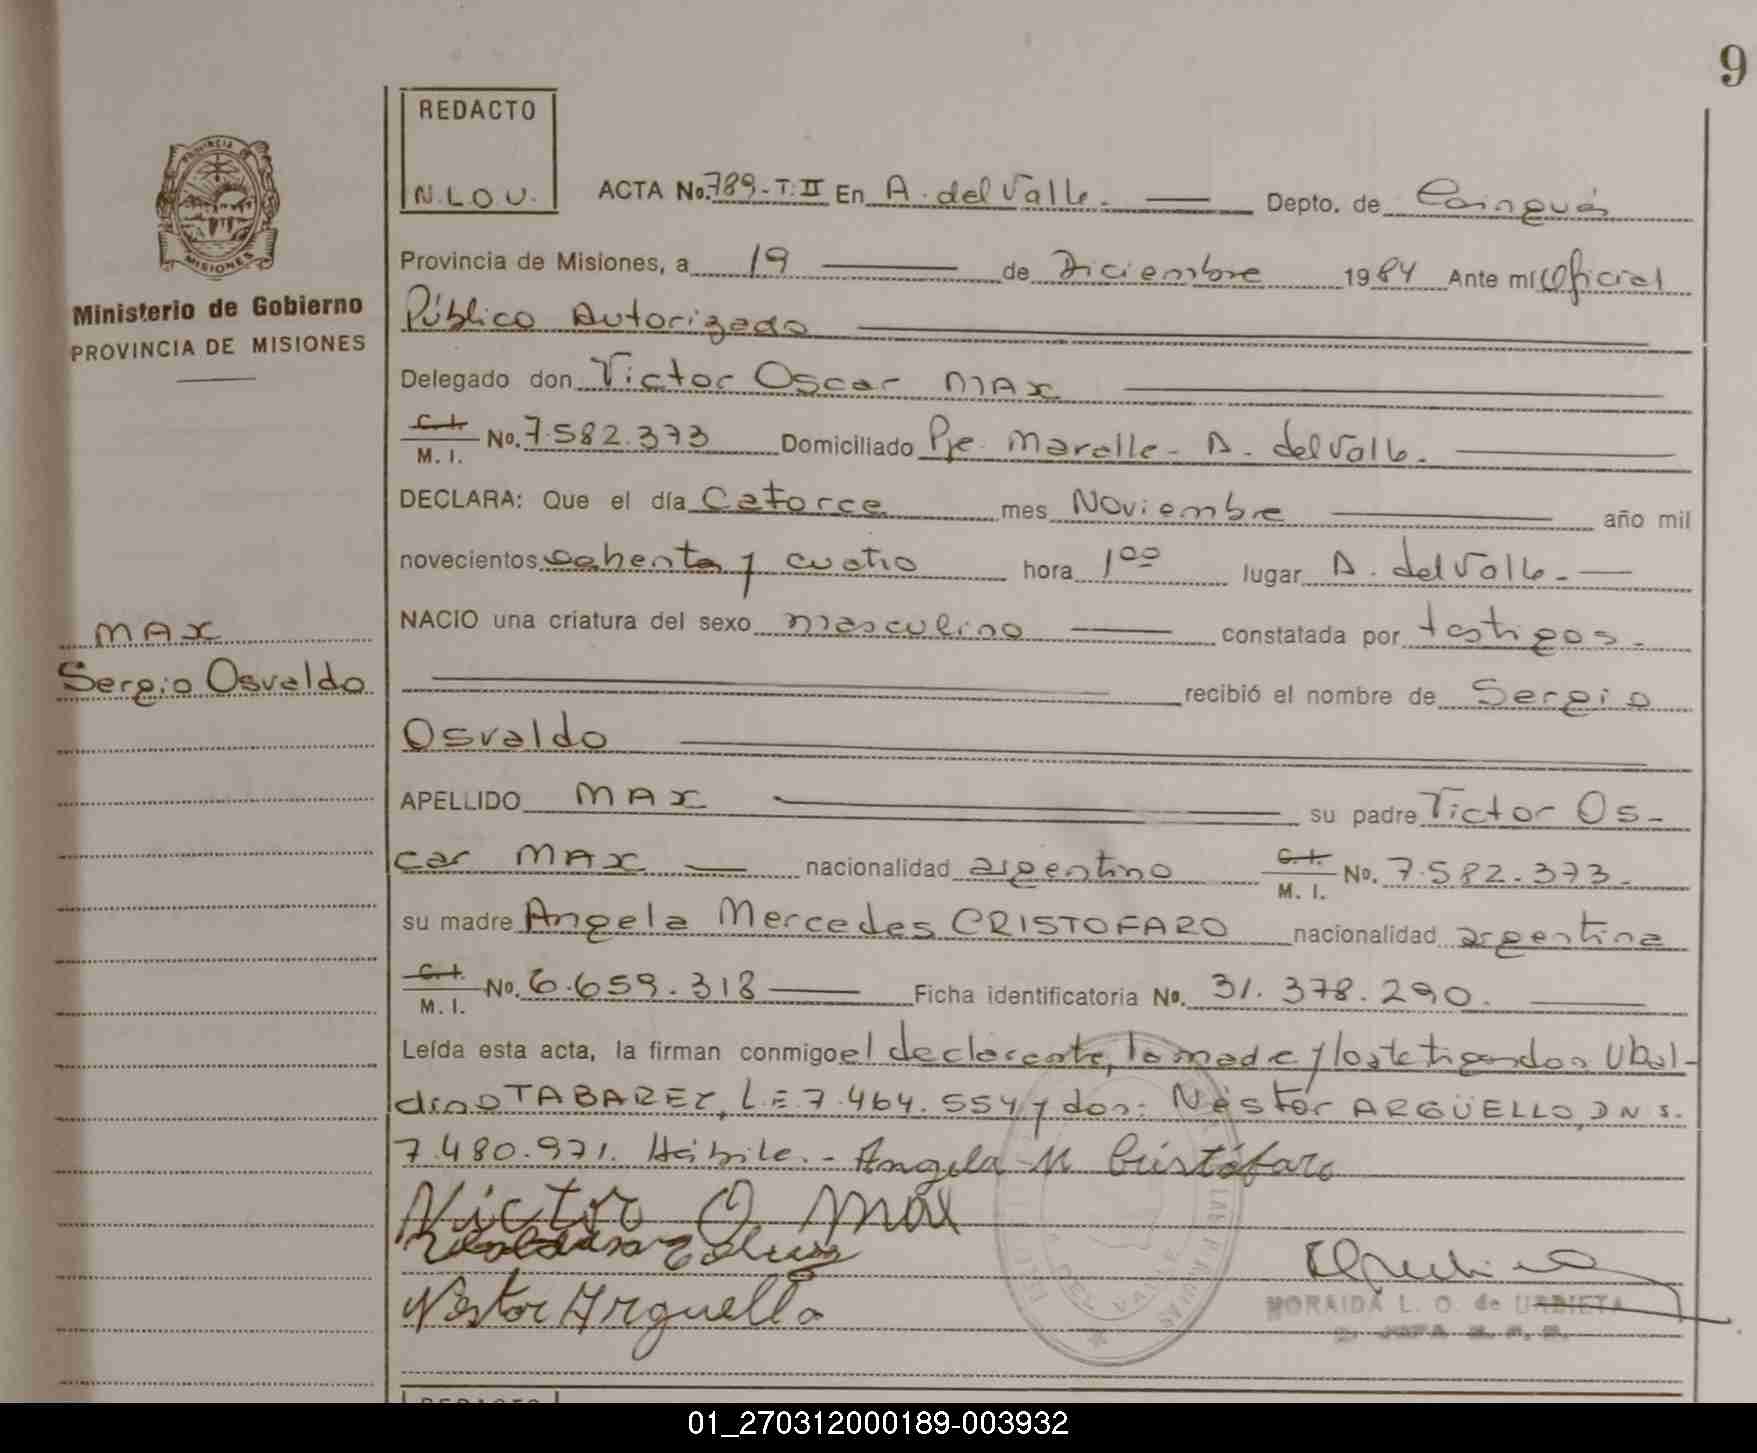 9
REDACTO
N.L.O.U.
PROVINCIA DE
MISIONES
Ministerio de Gobierno
PROVINCIA DE MISIONES
ACTA No. 789-T.II En A. del Valle. Depto. de Cainguás
Provincia de Misiones, a 19 de Diciembre 1984 Ante mí Oficial
Público Autorizado
Delegado don Victor Oscar MAX
C.I. M. I. No. 7.582.373 Domiciliado Pje. Maralle - A. del Valle.
DECLARA: Que el día Catorce mes Noviembre año mil
novecientos ochenta y cuatro hora 1⁰⁰ lugar A. del Valle.
NACIO una criatura del sexo masculino constatada por testigos.
MAX
Sergio Osvaldo
recibió el nombre de Sergio
Osvaldo
APELLIDO MAX su padre Victor Os-
car MAX nacionalidad argentino C.I. M. I. No. 7.582.373.
su madre Angela Mercedes CRISTOFARO nacionalidad argentina
C.I. M. I. No. 6.659.318 Ficha identificatoria No. 31.378.290.
Leída esta acta, la firman conmigo el declarante, la madre y los testigos don Ubal-
dino TABAREZ, L.E. 7.464.554 y don: Néstor ARGÜELLO, DNI.
7.480.971. Hábile. - Angela M Cristófaro
Victor O Max
Nestor Arguello
DEL VALLE
NORAIDA L. O. de URBIETA
REDACTO
01_270312000189-003932